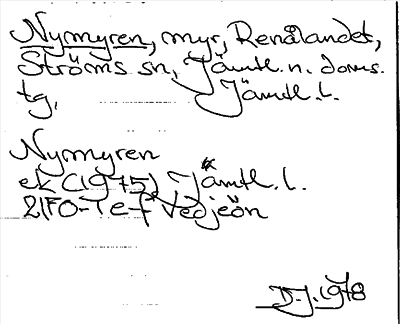 Nymyren, myr, Renålandet,
Ströms sn, Jämtl. n. doms.
tg, Jämtl. l.
Nymyren
ek (1975) Jämtl. l.
21FO-Tef Vedjeön
D.J. 1978